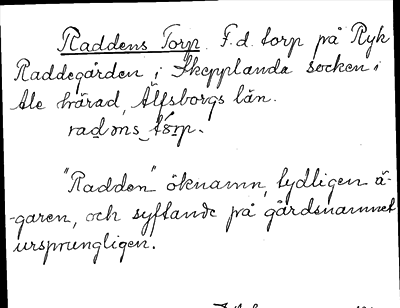 Raddens Torp. F.d. torp på Ryk
Raddegården, i Skepplanda socken i
Ale härad, Älfsborgs län.
radəns tɔrp.
"Radden" öknamn, tydligen ä-
-garen, och syftande på gårdsnamnet
ursprungligen.